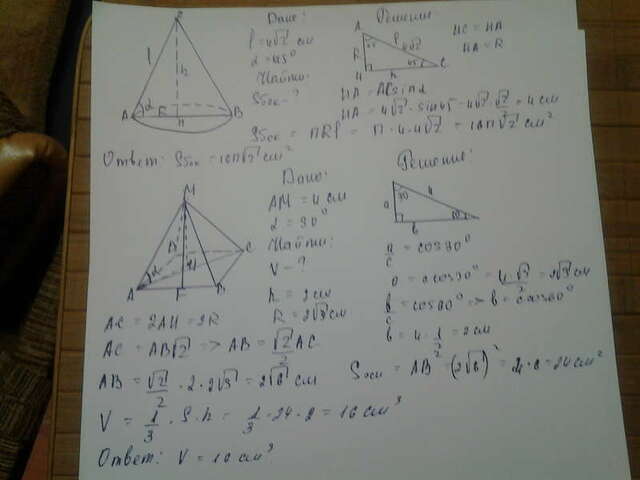 Дано:
l = 4√2 см
α = 45°
Найти:
Sбок - ?
Решение:
HC = HA
HA = R
HA = AC · sin α
HA = 4√2 · sin 45 = 4√2 · √2/2 = 4 см
Sбок = πRl = π · 4 · 4√2 = 16π√2 см²
Ответ: Sбок = 16π√2 см²
Дано:
AM = 4 см
α = 30°
Найти:
V - ?
Решение:
a/c = cos 30°
a = c cos 30° = 4√3/2 = 2√3 см
b/c = cos 60° => b = c cos 60°
b = 4 · 1/2 = 2 см
h = 2 см
R = 2√3 см
AC = 2AH = 2R
AC = AB√2 => AB = √2AC/2
AB = √2/2 · 2 · 2√3 = 2√6 см
Sосн = AB² = (2√6)² = 4 · 6 = 24 см²
V = 1/3 · S · h = 1/3 · 24 · 2 = 16 см³
Ответ: V = 16 см³